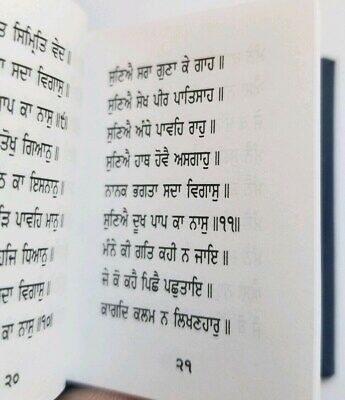 ਤ ਸਿਮ੍ਰਿਤਿ ਵੇਦ
ਸਦਾ ਵਿਗਾਸੁ॥
ਪਾਪ ਕਾ ਨਾਸੁ॥੯॥
ਤੋਖੁ ਗਿਆਨੁ॥
ਠ ਕਾ ਇਸਨਾਨੁ॥
ੜਿ ਪਾਵਹਿ ਮਾਨੁ॥
ਹਜਿ ਧਿਆਨੁ॥
ਦਾ ਵਿਗਾਸੁ॥
ਕਾ ਨਾਸੁ॥੧੦॥
੨੦
ਸੁਣਿਐ ਸਰਾ ਗੁਣਾ ਕੇ ਗਾਹ॥
ਸੁਣਿਐ ਸੇਖ ਪੀਰ ਪਾਤਿਸਾਹ॥
ਸੁਣਿਐ ਅੰਧੇ ਪਾਵਹਿ ਰਾਹੁ॥
ਸੁਣਿਐ ਹਾਥ ਹੋਵੈ ਅਸਗਾਹੁ॥
ਨਾਨਕ ਭਗਤਾ ਸਦਾ ਵਿਗਾਸੁ॥
ਸੁਣਿਐ ਦੂਖ ਪਾਪ ਕਾ ਨਾਸੁ॥੧੧॥
ਮੰਨੇ ਕੀ ਗਤਿ ਕਹੀ ਨ ਜਾਇ॥
ਜੇ ਕੋ ਕਹੈ ਪਿਛੈ ਪਛੁਤਾਇ॥
ਕਾਗਦਿ ਕਲਮ ਨ ਲਿਖਣਹਾਰੁ॥
੨੧